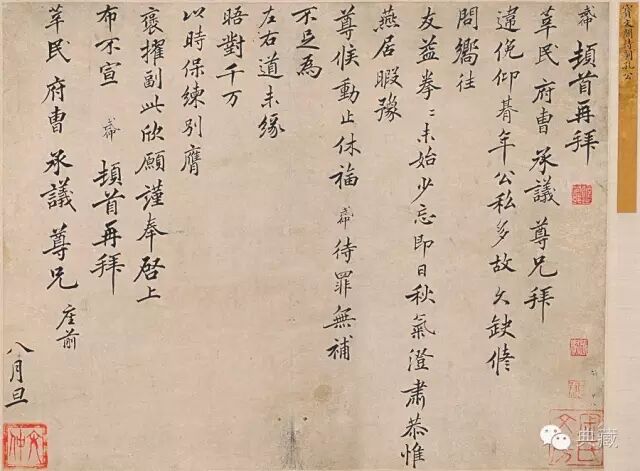 寶文閣待制孔公
武仲頓首再拜
莘民府曹承議尊兄拜
違俛仰朞年公私多故久缺脩
問嚮往
友益拳〻未始少忘即日秋氣澄肅恭惟
燕居暇豫
尊候動止休福武仲待罪無補
不足為
左右道未緣
晤對千万
以時保練別膺
褒擢副此欣願謹奉啓上
布不宣武仲頓首再拜
莘民府曹承議尊兄座前
八月旦
典藏